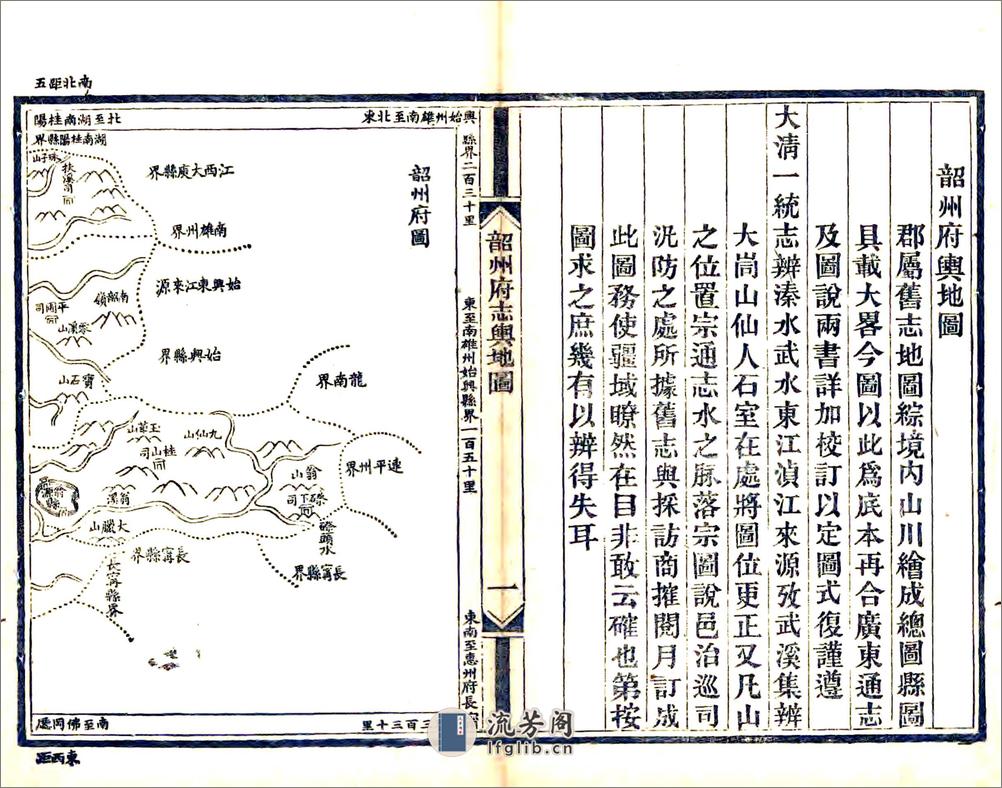 韶州府輿地圖
郡屬舊志地圖綜境内山川繪成總圖縣圖
具載大畧今圖以此爲底本再合廣東通志
及圖說兩書詳加校訂以定圖式復謹遵
大淸一統志辨溱水武水東江滇江來源攷武溪集辨
大崗山仙人石室在處將圖位更正又凡山
之位置宗通志水之脉落宗圖說邑治巡司
汛防之處所據舊志與採訪商搉閱月訂成
此圖務使疆域瞭然在目非敢云確也第按
圖求之庶幾有以辨得失耳
韶州府志輿地圖
一
韶州府圖
南北距五
東北至南雄州始興
縣界二百三十里
東至南雄州始興縣界一百五十里
東南至惠州府長
三百三十里
北至湖南桂陽
湖南桂陽縣界
扶溪司
江西大庾縣界
南雄州界
始興東江來源
始興縣界
平圃司
寶石山
龍南界
玉華山
九仙山
桂山司
翁山
連平州界
翁源縣
翁溪
磜下司
大臘山
磜頭水
長甯縣界
長甯縣界
長甯縣界
南至佛岡廳
東西距
流芳阁
lfglib.cn